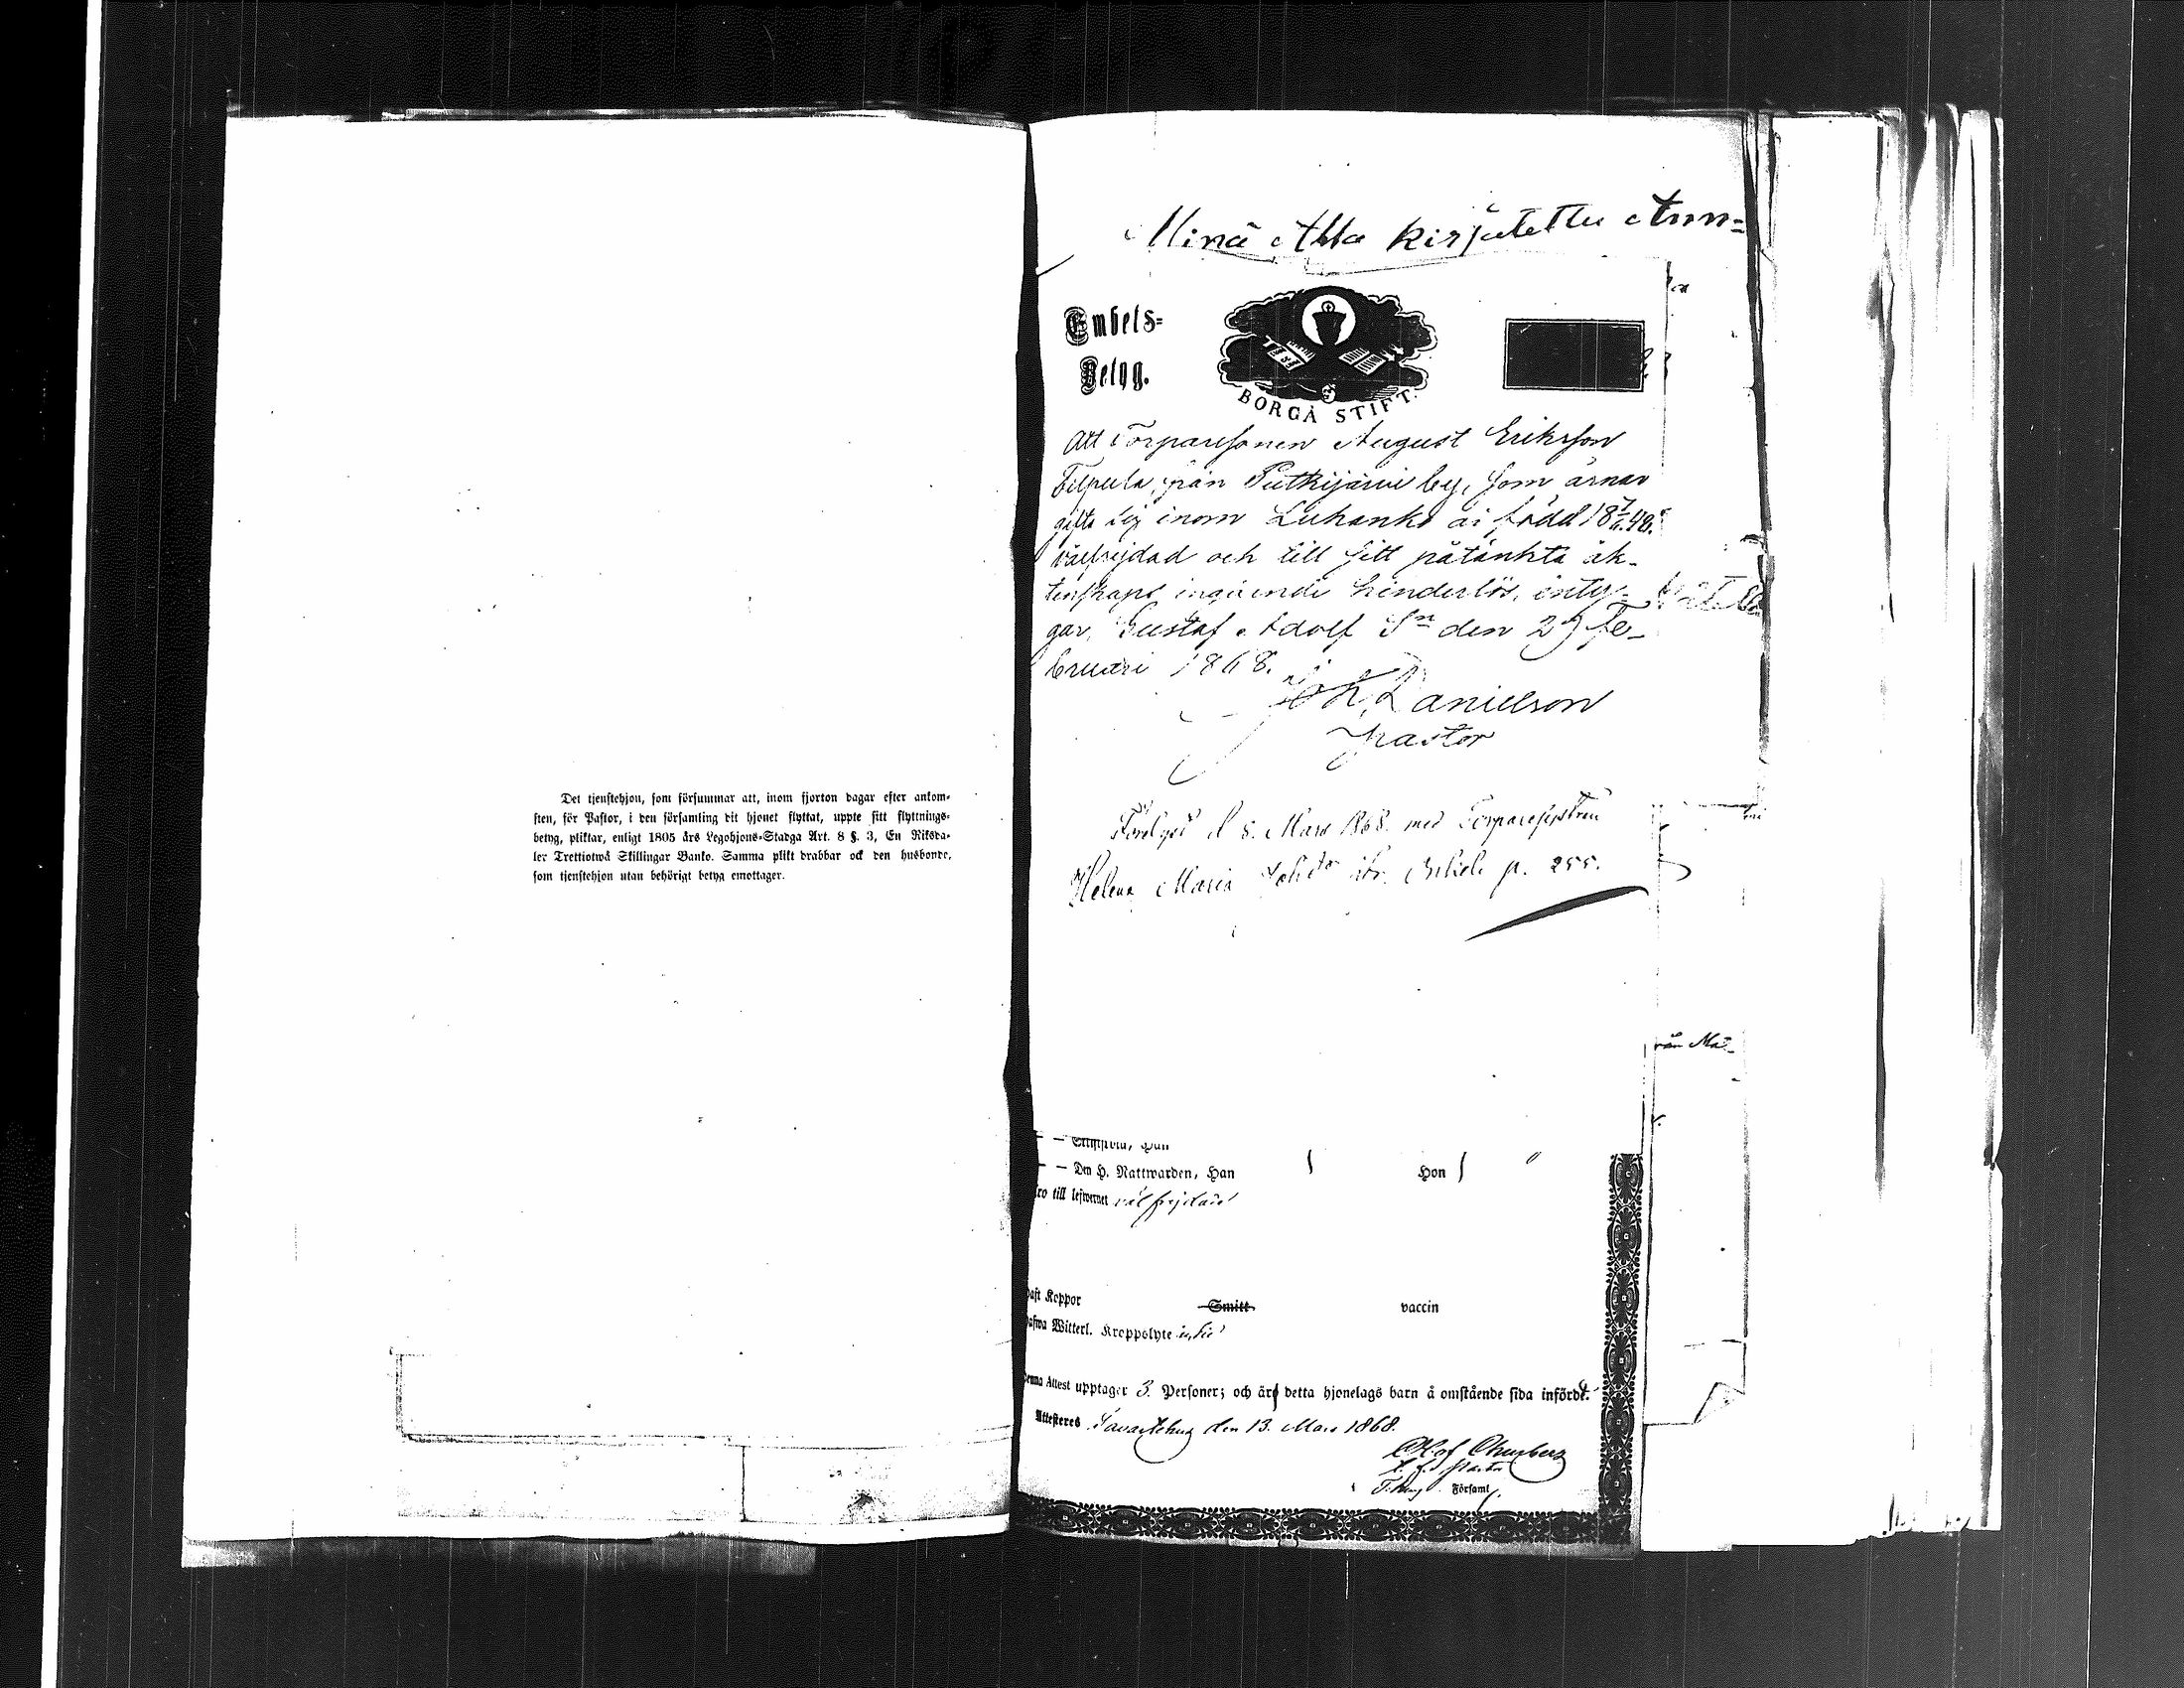 Det tjenstehjon, som försummar att, inom fjorton dagar efter ankom-
sten, för Pastor, i den församling dit hjonet flyttat, uppte sitt flyttnings-
betyg, pliktar, enligt 1805 års Legohjons-Stadga Art. 8 §. 3, En Riksda-
ler Trettiotwå Skillingar Banko. Samma plikt drabbar ock den husbonde,
som tjenstehjon utan behörigt betyg emottager.
Minä Alla kirjutettu Ann=
Embets=
Betyg.
BORGÅ STIFT.
Att Torparesonen August Eriksson
från Putkijärvi by, som ärnar
gifta sig inom Luhanko är född
välfrejdad och till sitt påtänkta äk-
tenskaps ingående hinderlös, inty-
gar, Gustaf Adolf Sn den 29 Fe-
bruari 1868.
Joh. Danielson
Pastor
d 8. Mars 1868 med
Helena Maria p. 255.
rån Ma-
— Den H. Nattwarden, Han Hon
ro till lefwernet välfrejdade
aft Koppor Smitt vaccin
afwa Witterl. Kroppslyte
enna Attest upptager 3. Personer; och är detta hjonelags barn å omstående sida införde.
Attesteres Tavastehus den 13. Mars 1868.
Olof
Församl.